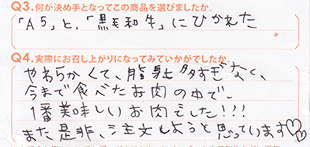 Q3.何が決め手となってこの商品を選びましたか。
「A5」と、「黒毛和牛」にひかれた
Q4.実際にお召し上がりになってみていかがでしたか。
やわらかくて、脂身も多すぎなく、
今まで食べたお肉の中で、
1番美味しいお肉でした!!!
また是非、注文しようと思っています♡♡